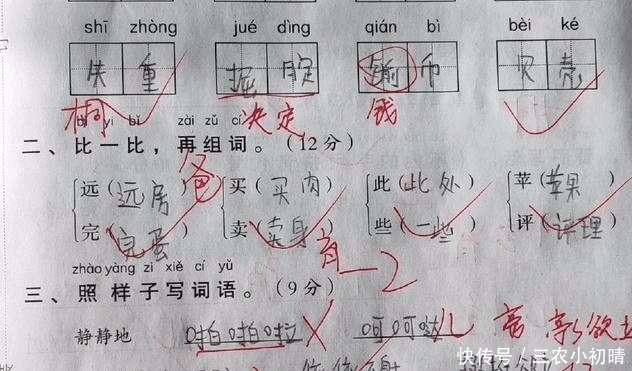 shī zhòng jué dìng qián bì bèi ké
失重 掘腚 币 贝壳
决定 钱
bǐ yi bǐ zài zǔ cí
二、比一比，再组词。（12分）
远（远房） 买（买肉） 此（此处） 苹（苹果）
完（完蛋） 卖（卖身） 些（一些） 评（评理）
-2
zhào yàng zi xiě cí yǔ
三、照样子写词语。（9分）
静静地 啪啪啪 呵呵哒
快传号／三农小初晴